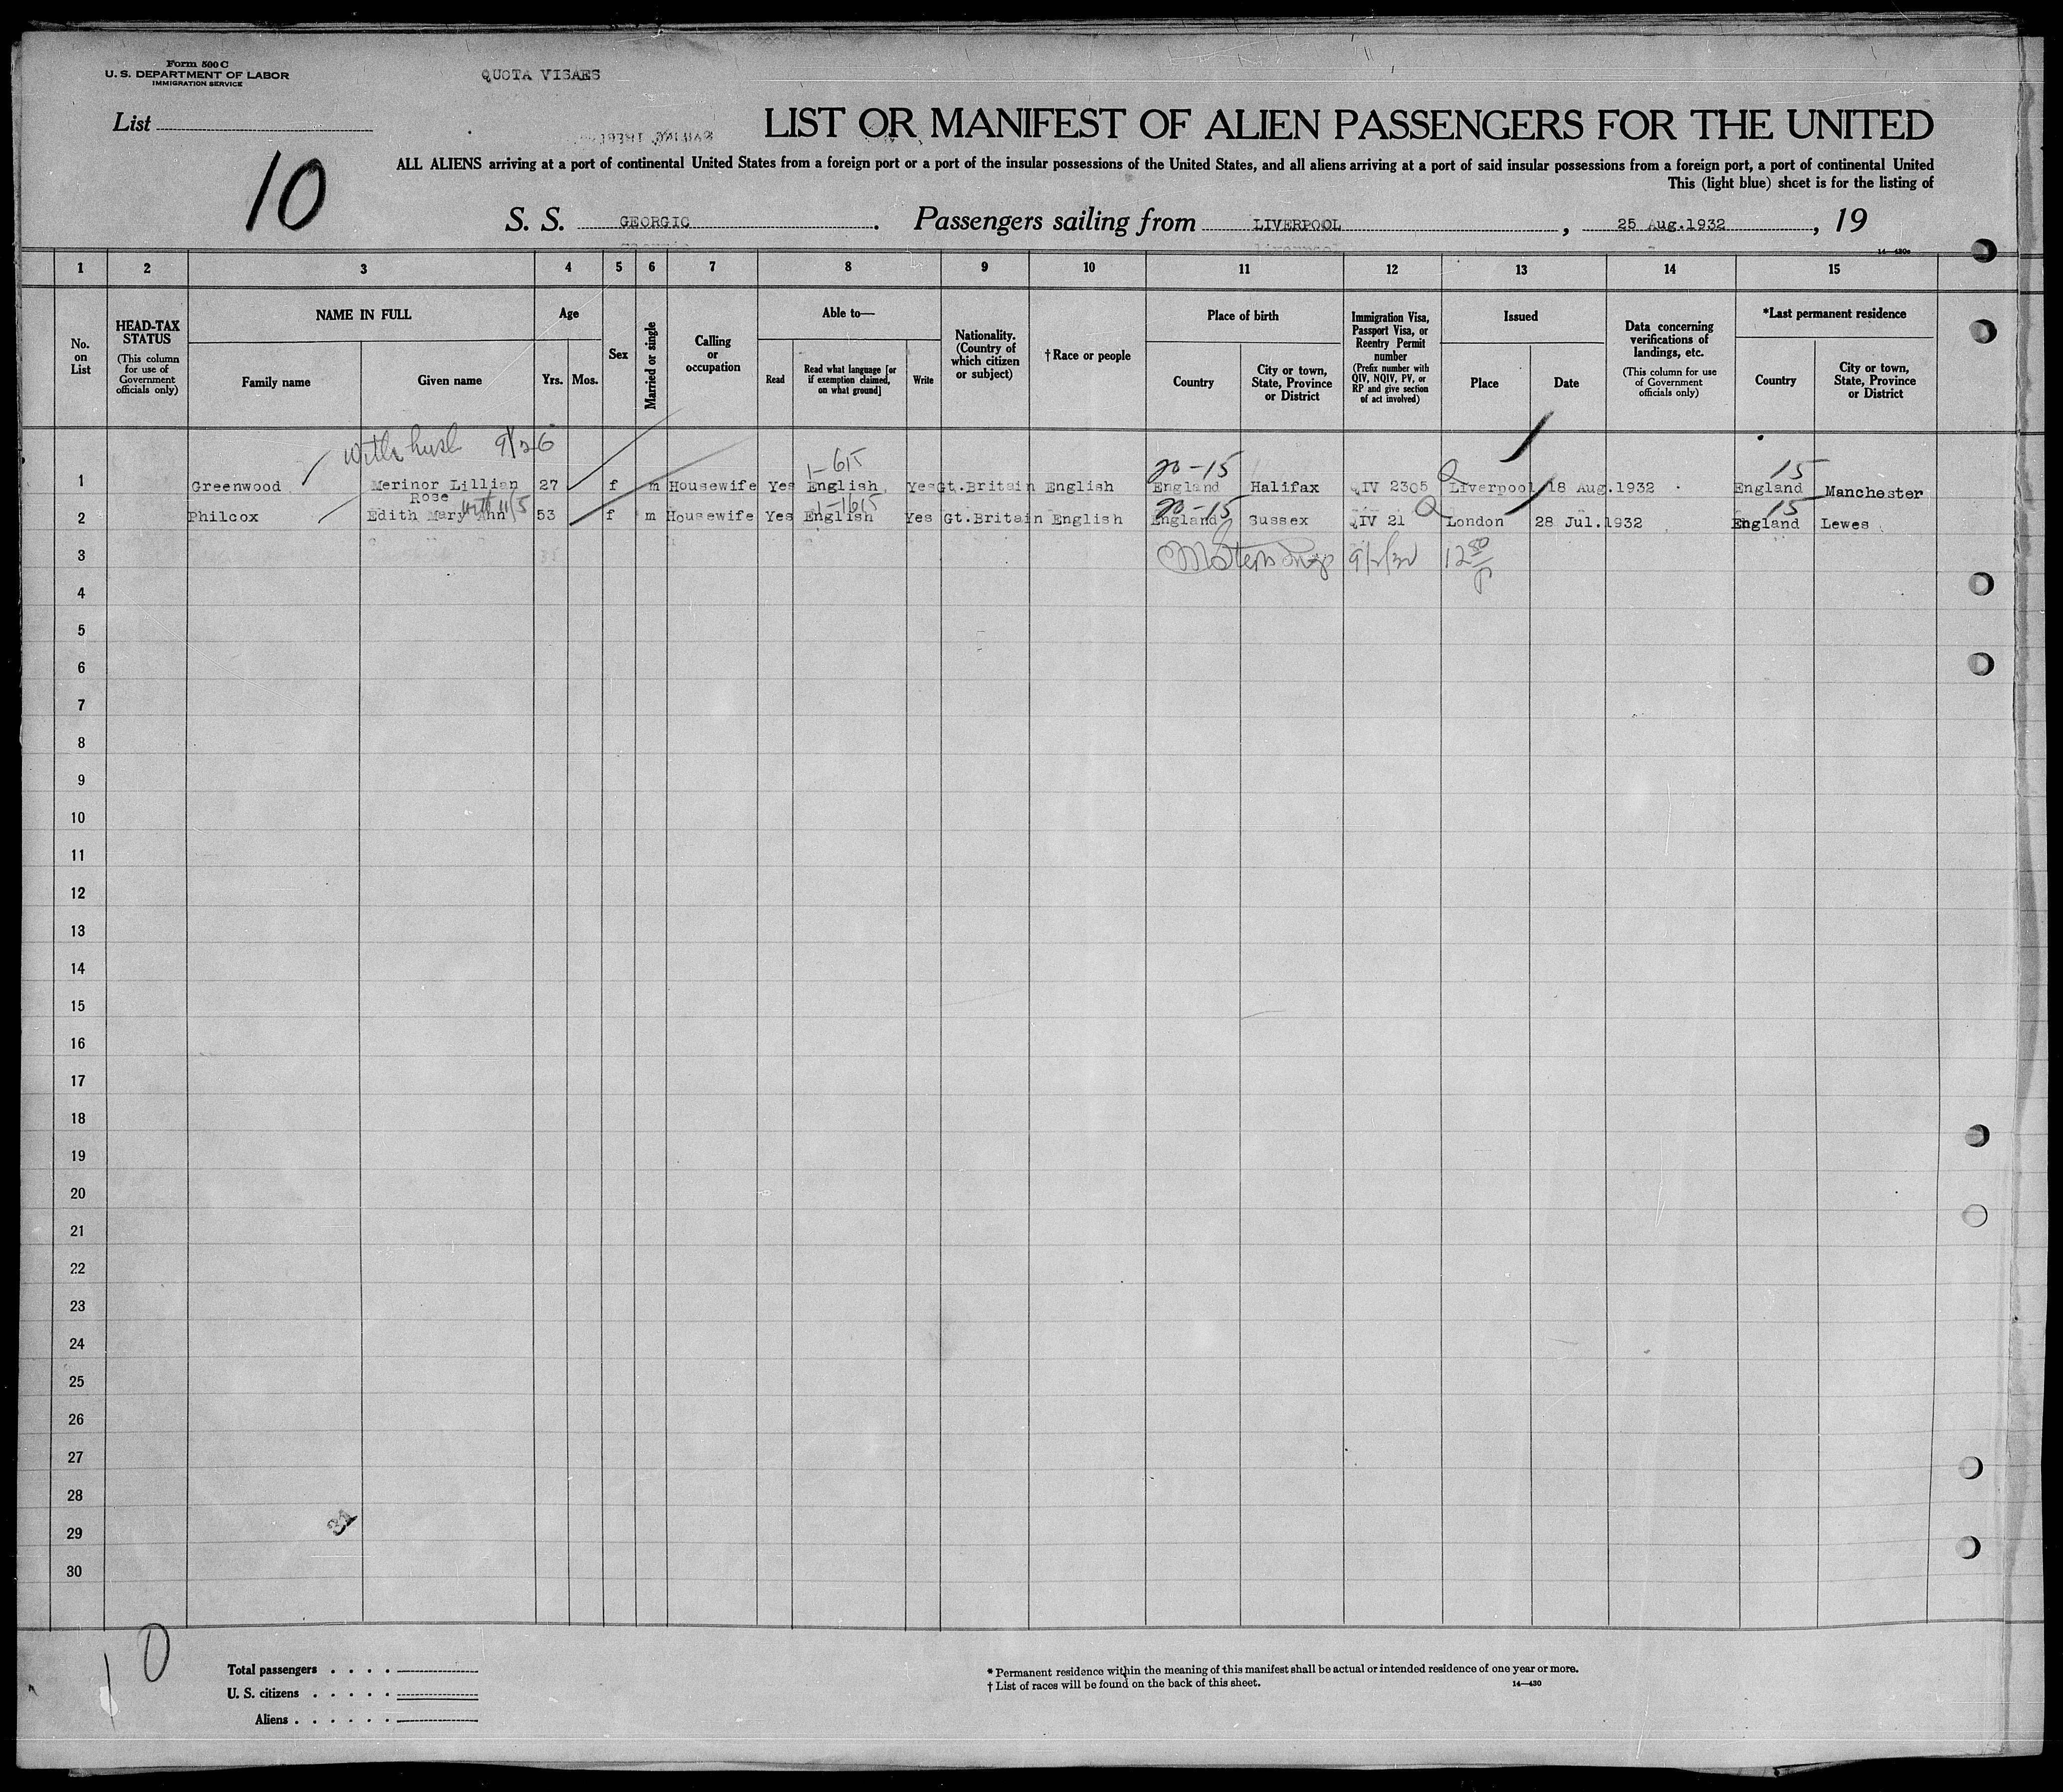 Form 500 C
U. S. DEPARTMENT OF LABOR
IMMIGRATION SERVICE
QUOTA VISAES
List
10
LIST OR MANIFEST OF ALIEN PASSENGERS FOR THE UNITED
ALL ALIENS arriving at a port of continental United States from a foreign port or a port of the insular possessions of the United States, and all aliens arriving at a port of said insular possessions from a foreign port, a port of continental United
This (light blue) sheet is for the listing of
S. S. GEORGIC. Passengers sailing from LIVERPOOL, 25 Aug.1932, 19
14—430c
1 2 3 4 5 6 7 8 9 10 11 12 13 14 15
No. on List
HEAD-TAX STATUS
(This column for use of Government officials only)
NAME IN FULL
Family name
Given name
Age
Yrs. Mos.
Sex
Married or single
Calling or occupation
Able to—
Read
Read what language [or if exemption claimed, on what ground]
Write
Nationality. (Country of which citizen or subject)
† Race or people
Place of birth
Country
City or town, State, Province or District
Immigration Visa, Passport Visa, or Reentry Permit number
(Prefix number with QIV, NQIV, PV, or RP and give section of act involved)
Issued
Place
Date
Data concerning verifications of landings, etc.
(This column for use of Government officials only)
*Last permanent residence
Country
City or town, State, Province or District
with husb 9/26
1-615 20-15 Q 15
1 Greenwood Merinor Lillian 27 f m Housewife Yes English Yes Gt.Britain English England Halifax QIV 2305 Liverpool 18 Aug.1932 England Manchester
Rose with 11/5 1-1615 20-15 Q 15
2 Philcox Edith Mary Ann 53 f m Housewife Yes English Yes Gt.Britain English England Sussex QIV 21 London 28 Jul.1932 England Lewes
3 9/2/32 12 50/P
4
5
6
7
8
9
10
11
12
13
14
15
16
17
18
19
20
21
22
23
24
25
26
27
28
29
30
10
Total passengers
U. S. citizens
Aliens
* Permanent residence within the meaning of this manifest shall be actual or intended residence of one year or more.
† List of races will be found on the back of this sheet.
14—430